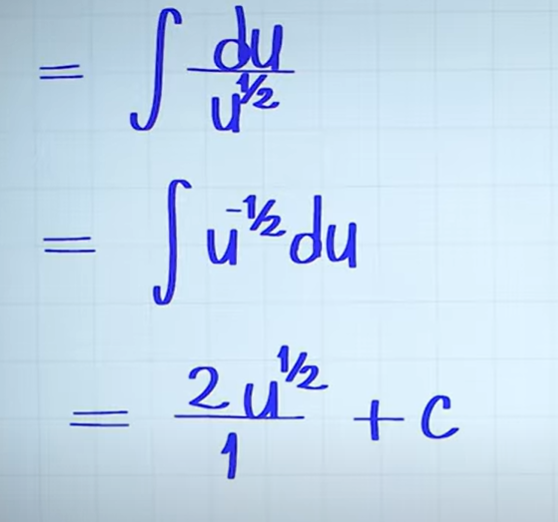 = ∫ du/u^(1/2)
= ∫ u^(-1/2) du
= 2u^(1/2)/1 + c